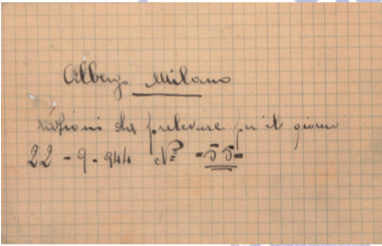 Albergo Milano
razioni da prelevare per il giorno
22 - 9 - 944 N° = 55 =